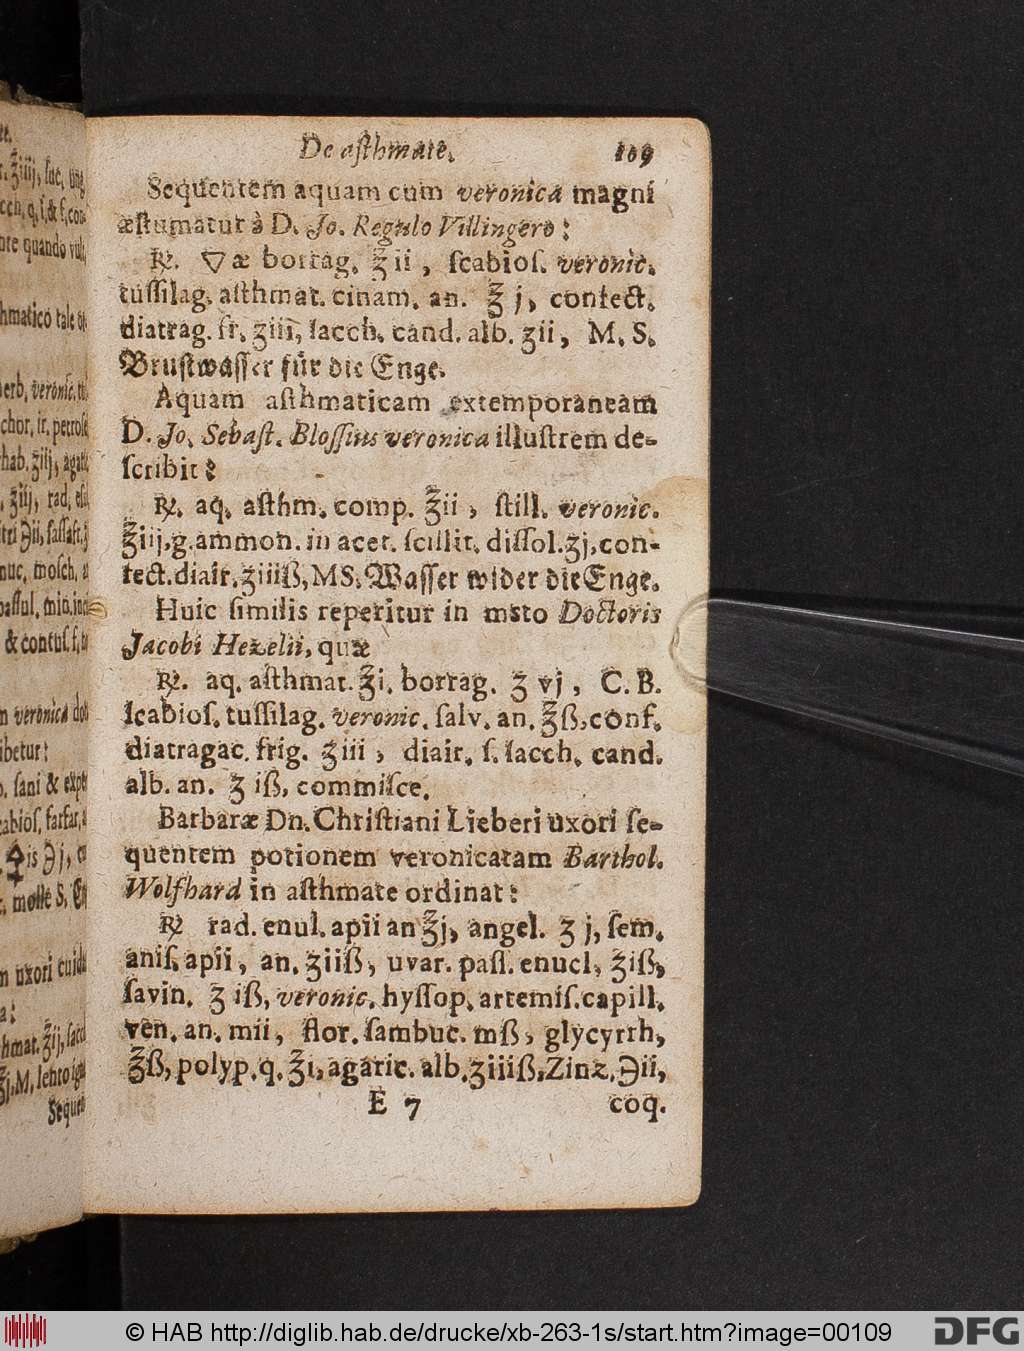 De aſthmate. 109
Sequentem aquam cum veronica magni
æſtumatur à D. Jo. Regulo Villingero:
℞. 🜄æ borrag. ℥ii, ſcabioſ. veronic.
tuſſilag. aſthmat. cinam. an. ℥j, confect.
diatrag. fr. ʒiii, ſacch. cand. alb. ʒii, M. S.
Bruſtwaſſer für die Enge.
Aquam aſthmaticam extemporaneam
D. Jo. Sebaſt. Bloſſius veronica illuſtrem de-
ſcribit:
℞. aq. aſthm. comp. ℥ii, ſtill. veronic.
℥iij, g. ammon. in acet. ſcillit. diſſol. ʒj, con-
fect. diair. ʒiiiß, MS. Waſſer wider die Enge.
Huic ſimilis reperitur in msto Doctoris
Jacobi Hezelii, quæ
℞. aq. aſthmat. ℥i. borrag. ʒ vj, C. B.
ſcabioſ. tuſſilag. veronic. ſalv. an. ℥ß, conf.
diatragac. frig. ʒiii, diair. ſ. ſacch. cand.
alb. an. ʒ iß, commiſce.
Barbaræ Dn. Chriſtiani Lieberi uxori ſe-
quentem potionem veronicatam Barthol.
Wolfhard in aſthmate ordinat:
℞ rad. enul. apii an ℥j, angel. ʒ j, ſem.
aniſ. apii, an. ʒiiß, uvar. paſſ. enucl, ℥iß,
ſavin. ʒ iß, veronic. hyſſop. artemiſ. capill.
ven. an. mii, flor. ſambuc. mß, glycyrrh,
℥ß, polyp. q. ℥i, agaric. alb. ʒiiiß, Zinz. ℈ii,
E 7 coq.
© HAB http://diglib.hab.de/drucke/xb-263-1s/start.htm?image=00109
DFG